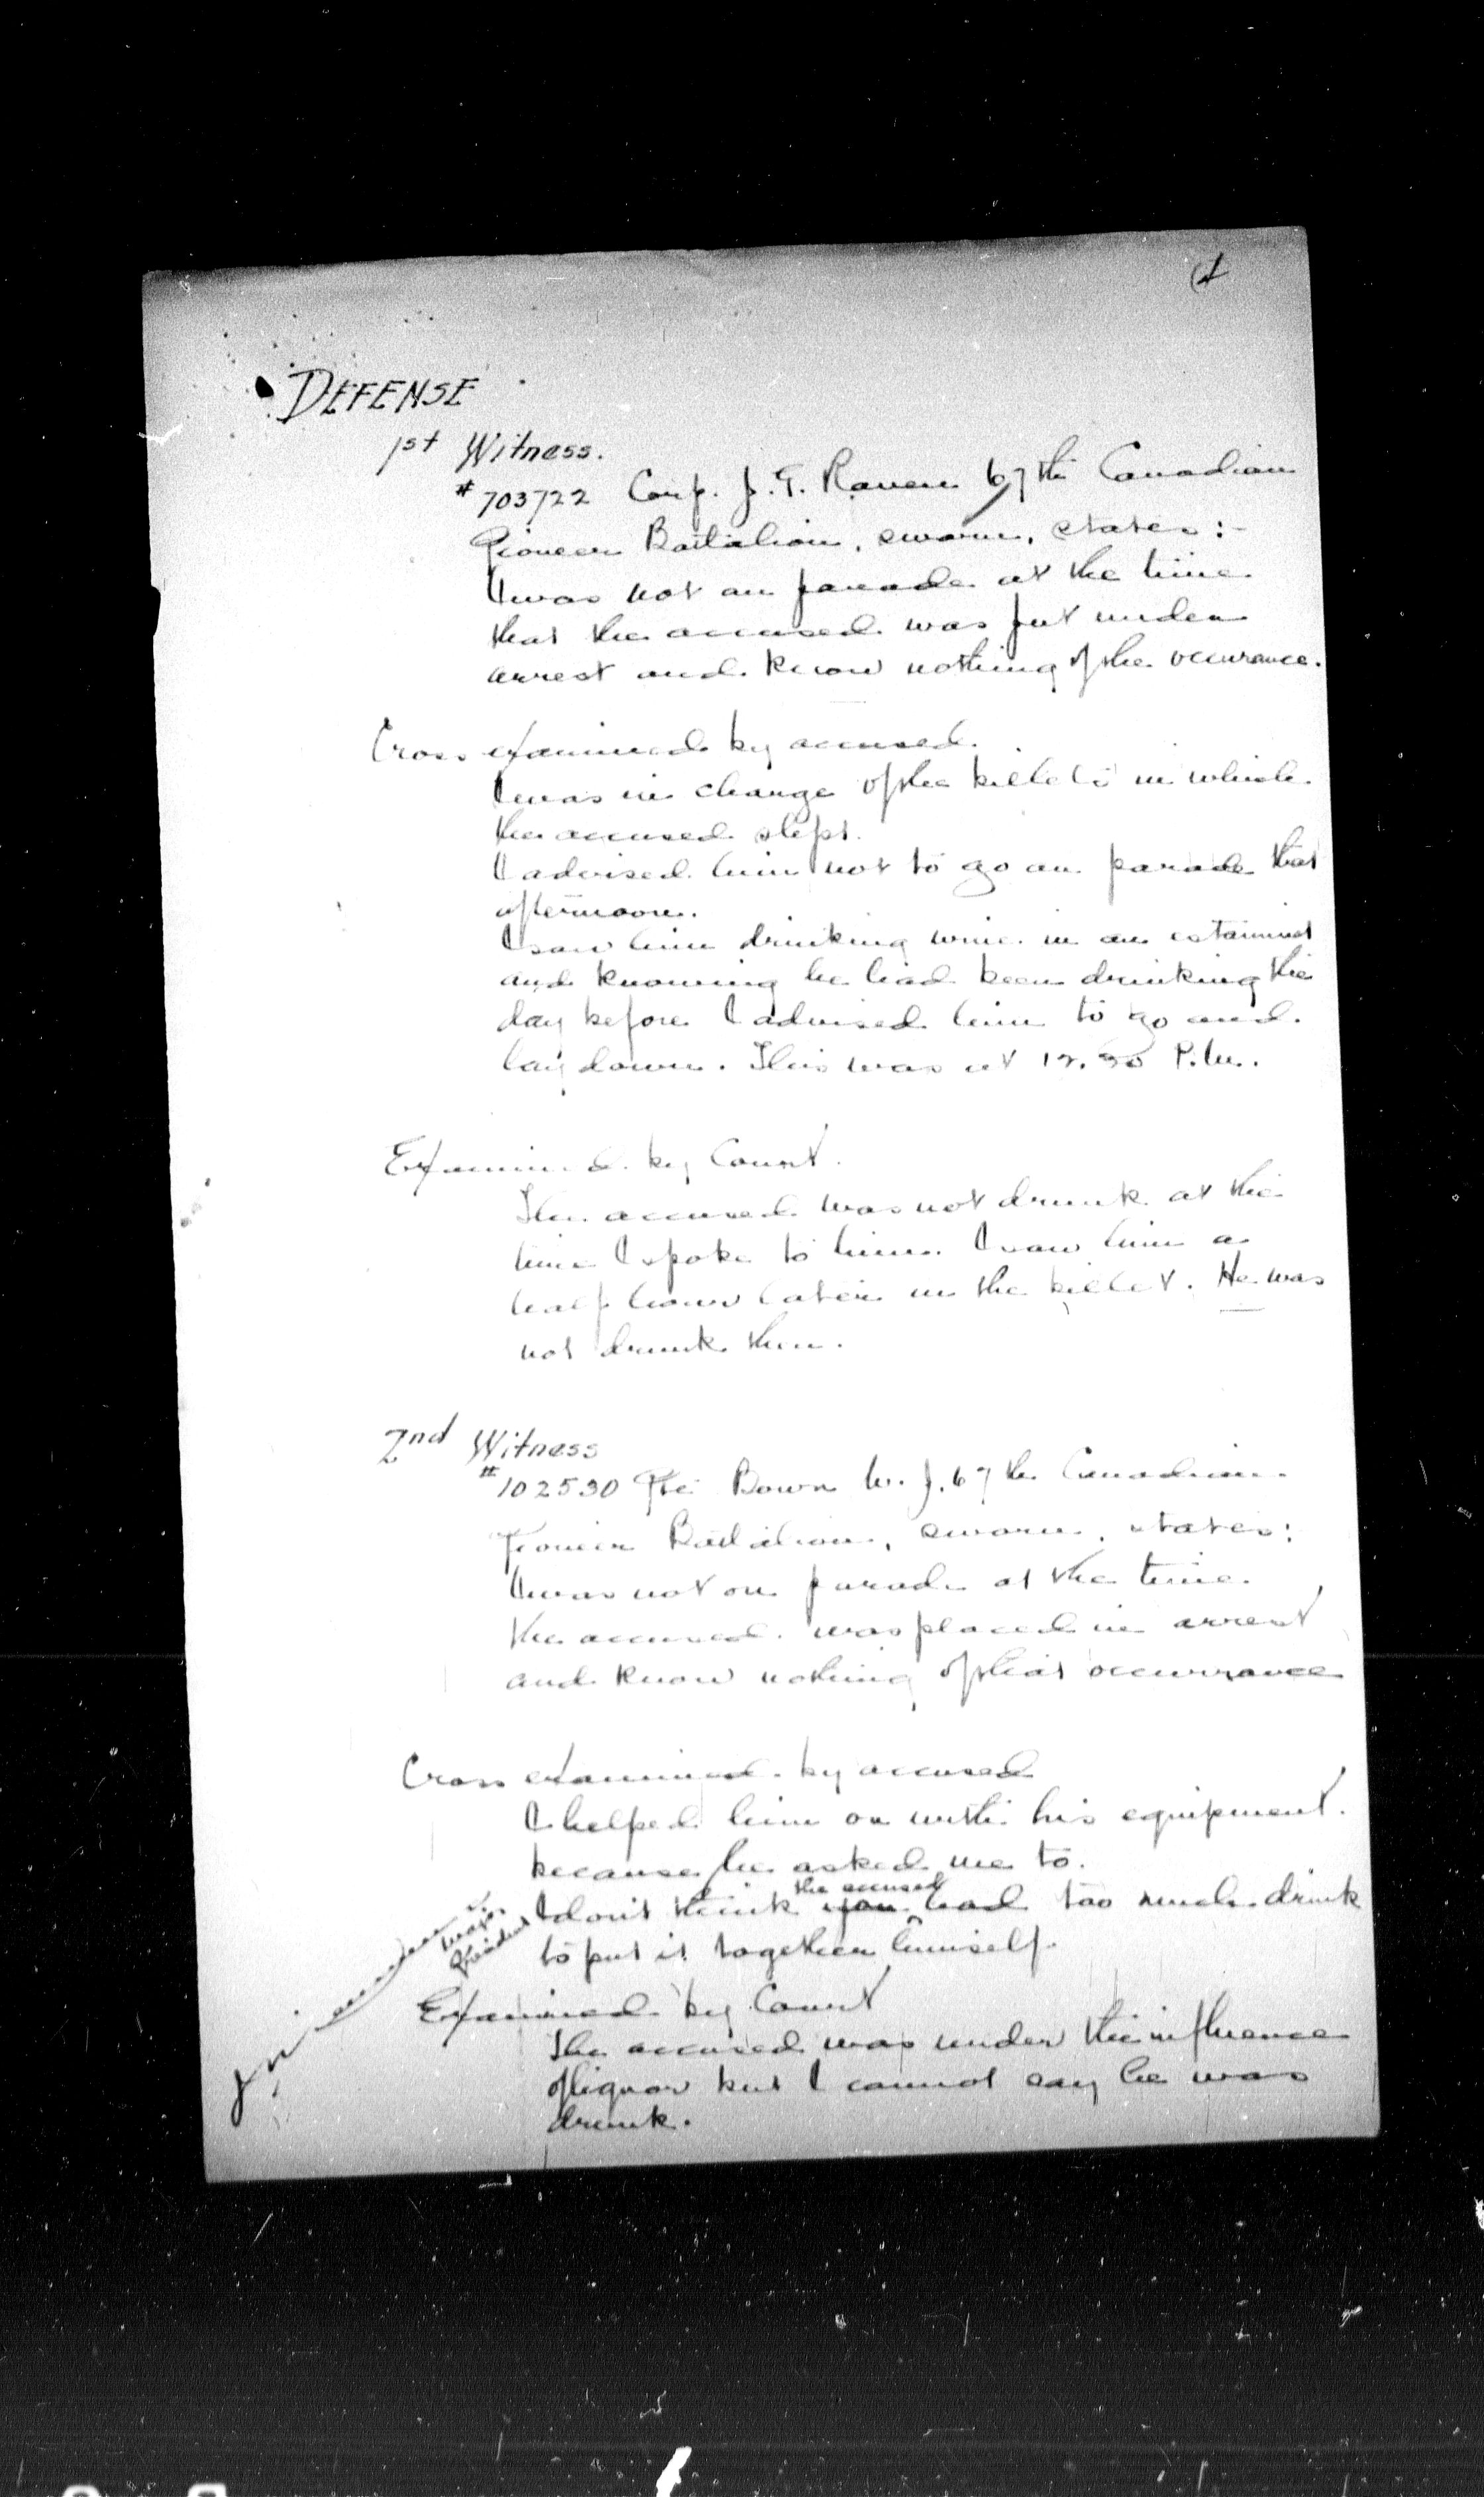 DEFENSE
1st Witness.
#703722 Corp. J. G. Raven 67th Canadian
Pioneer Battalion, sworn, states:-
I was not on parade at the time
that the accused was put under
arrest and know nothing of the occurance.
Cross examined by accused.
I was in charge of the billets in which
the accused slept.
I advised him not to go on parade that
afternoon.
I saw him drinking wine in an estaminet
and knowing he had been drinking the
day before I advised him to go and
lay down. This was at 12.30 P.M.
Examined by Court.
The accused was not drunk at the
time I spoke to him. I saw him a
half hour later in the billet. He was
not drunk then.
2nd Witness
#102530 Pte Bown W. J. 67th Canadian
Pioneer Battalion, sworn, states:
I was not on parade at the time
the accused was placed in arrest
and know nothing of that occurrance
Cross examined by accused
I helped him on with his equipment
because he asked me to.
the accused
I don't think you had too much drink
to put it together himself.
Major
President
Examined by Court
The accused was under the influence
of liquor but I cannot say he was
drunk.